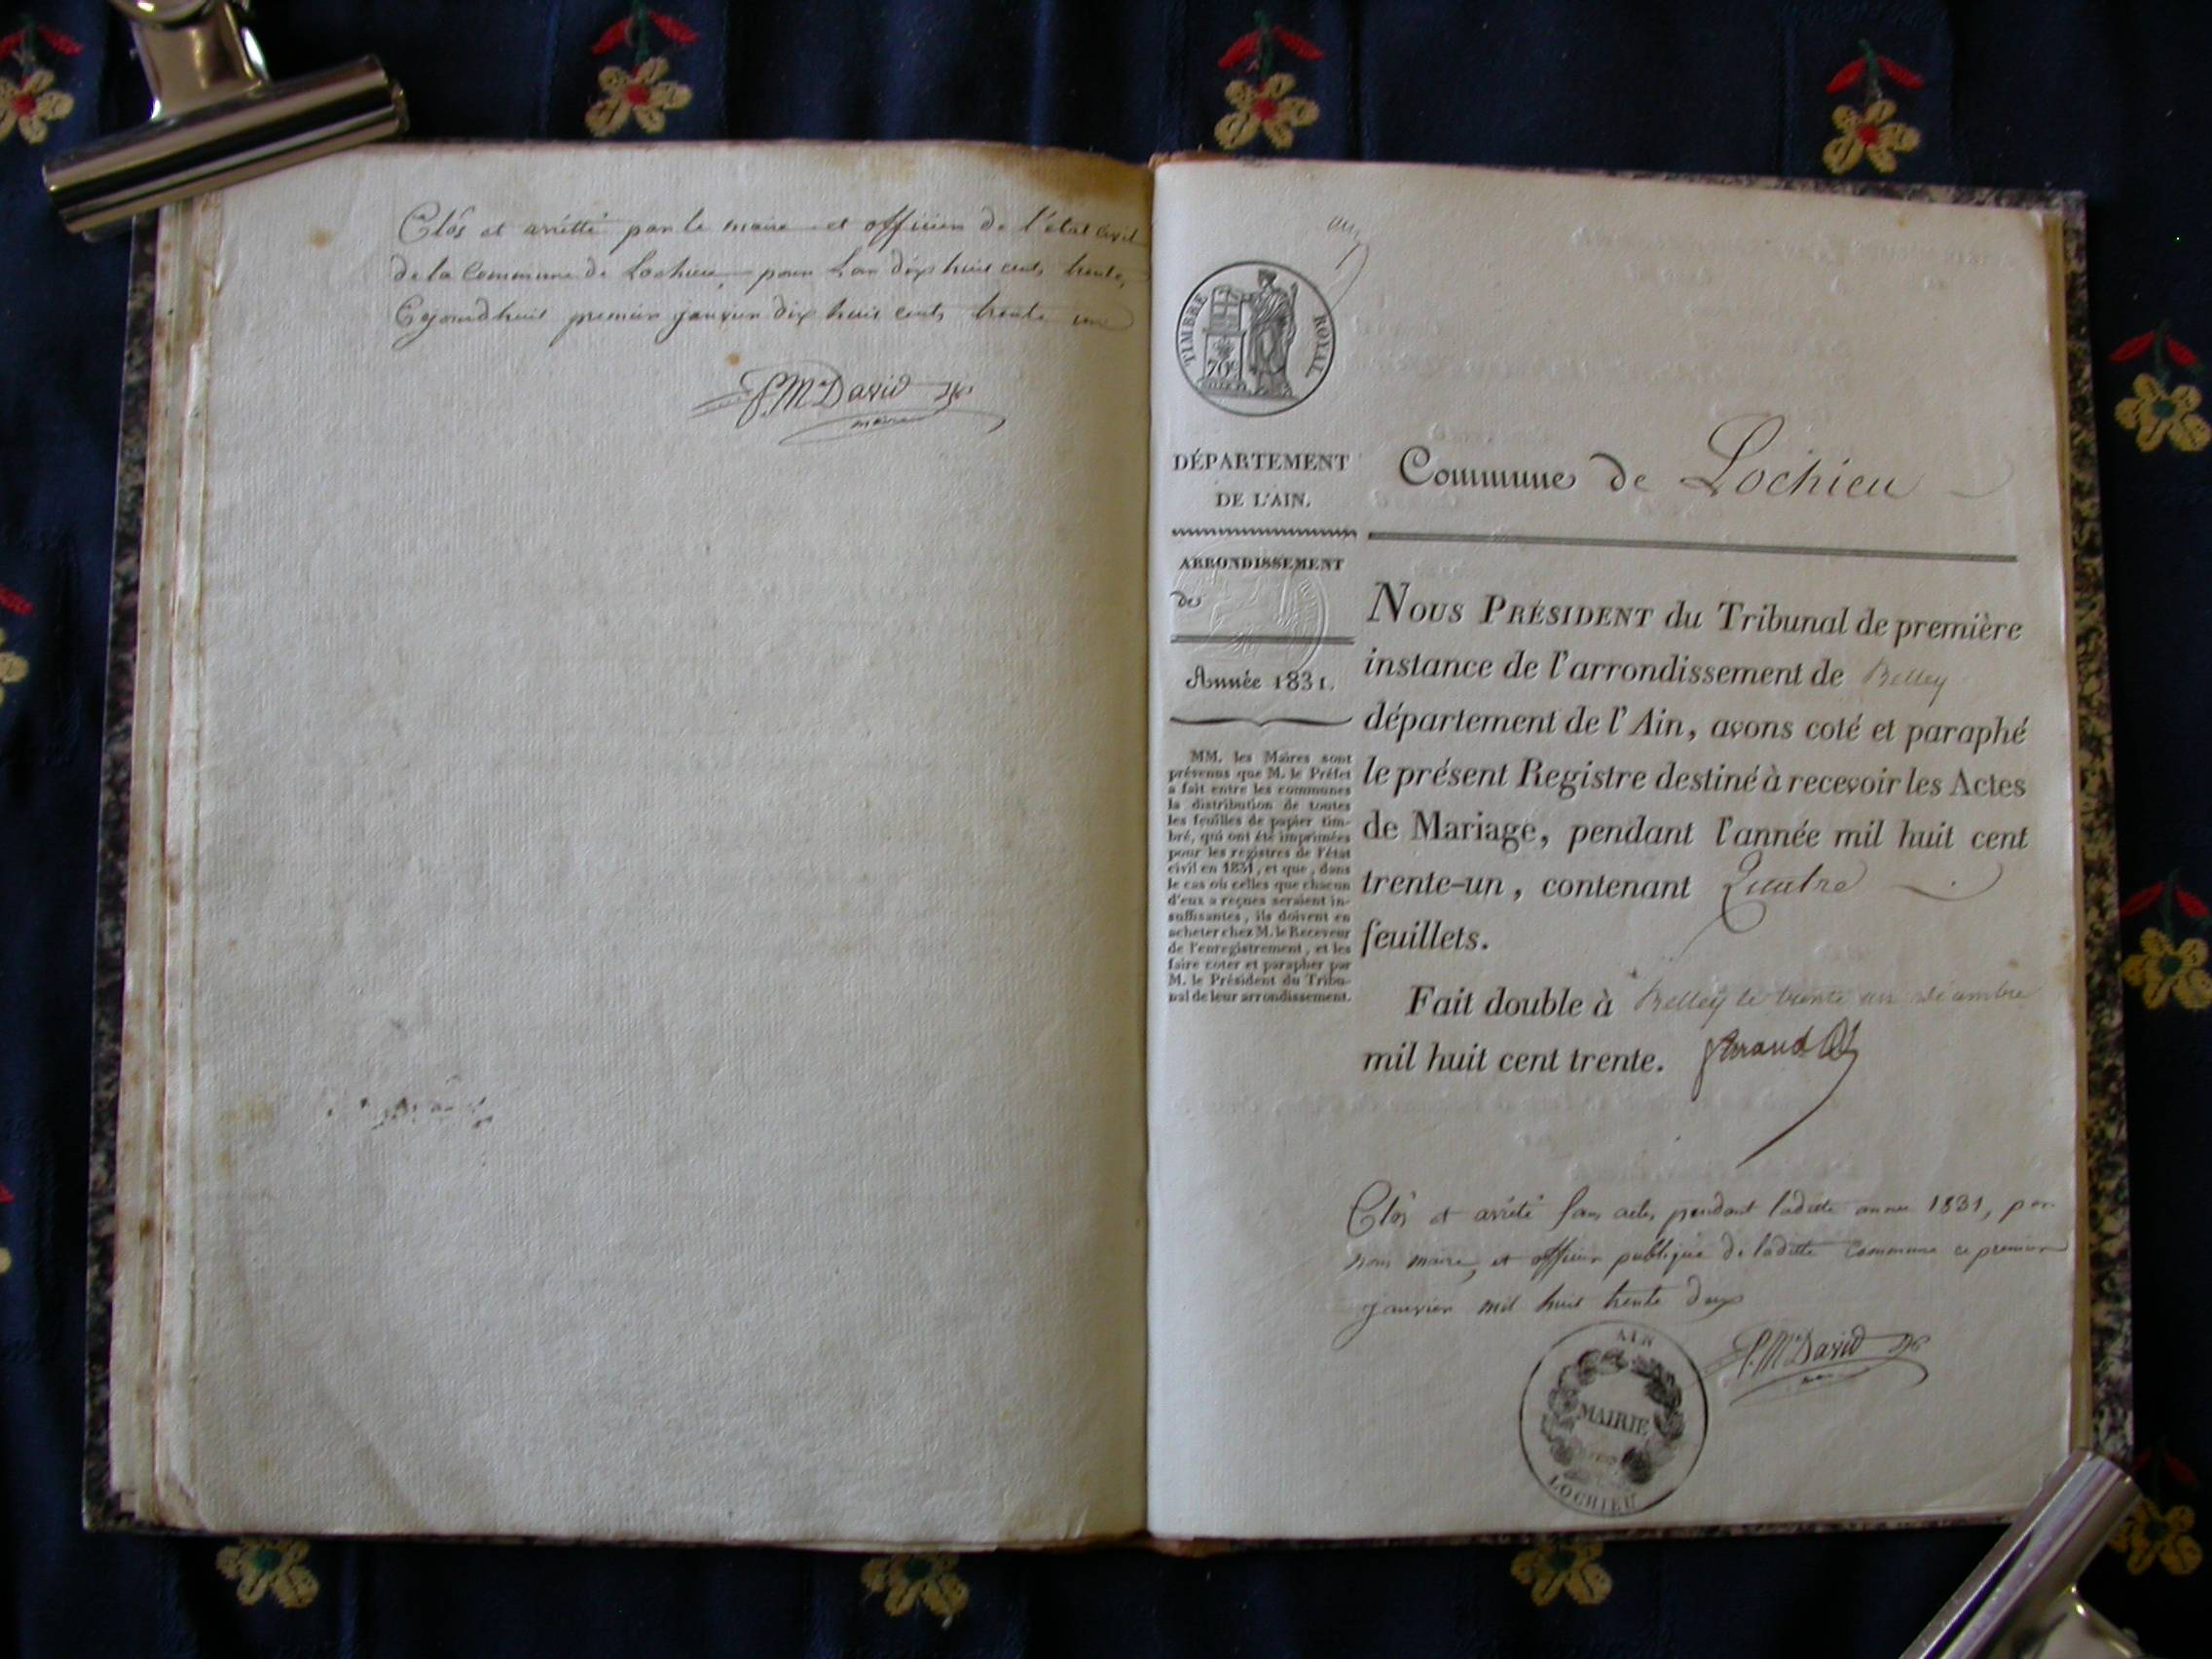 Clôs et arrêtté par le maire et officier de l'état civil
de la Commune de Lochieu, pour L'an dix huit cents trente,
Cejourdhuit premier janvier dix huit cents trente un
P. M. David
maire
TIMBRE ROYAL
70c
DÉPARTEMENT
DE L'AIN.
Commune de Lochieu
ARRONDISSEMENT
de
Année 1831.
MM. les Maires sont
prévenus que M. le Préfet
a fait entre les communes
la distribution de toutes
les feuilles de papier tim-
bré, qui ont été imprimées
pour les registres de l'état
civil en 1831, et que, dans
le cas où celles que chacun
d'eux a reçues seraient in-
suffisantes, ils doivent en
acheter chez M. le Receveur
de l'enregistrement, et les
faire coter et parapher par
M. le Président du Tribu-
nal de leur arrondissement.
NOUS PRÉSIDENT du Tribunal de première
instance de l'arrondissement de Belley
département de l'Ain, avons coté et paraphé
le présent Registre destiné à recevoir les Actes
de Mariage, pendant l'année mil huit cent
trente-un, contenant Quatre
feuillets.
Fait double à Belley le trente un décembre
mil huit cent trente.
Clôs et arrêté sans actes pendant laditte année 1831, par
nous maire, et officier publique de laditte Commune ce premier
janvier mil huit trente deux
P. M. David
AIN
MAIRIE
LOCHIEU